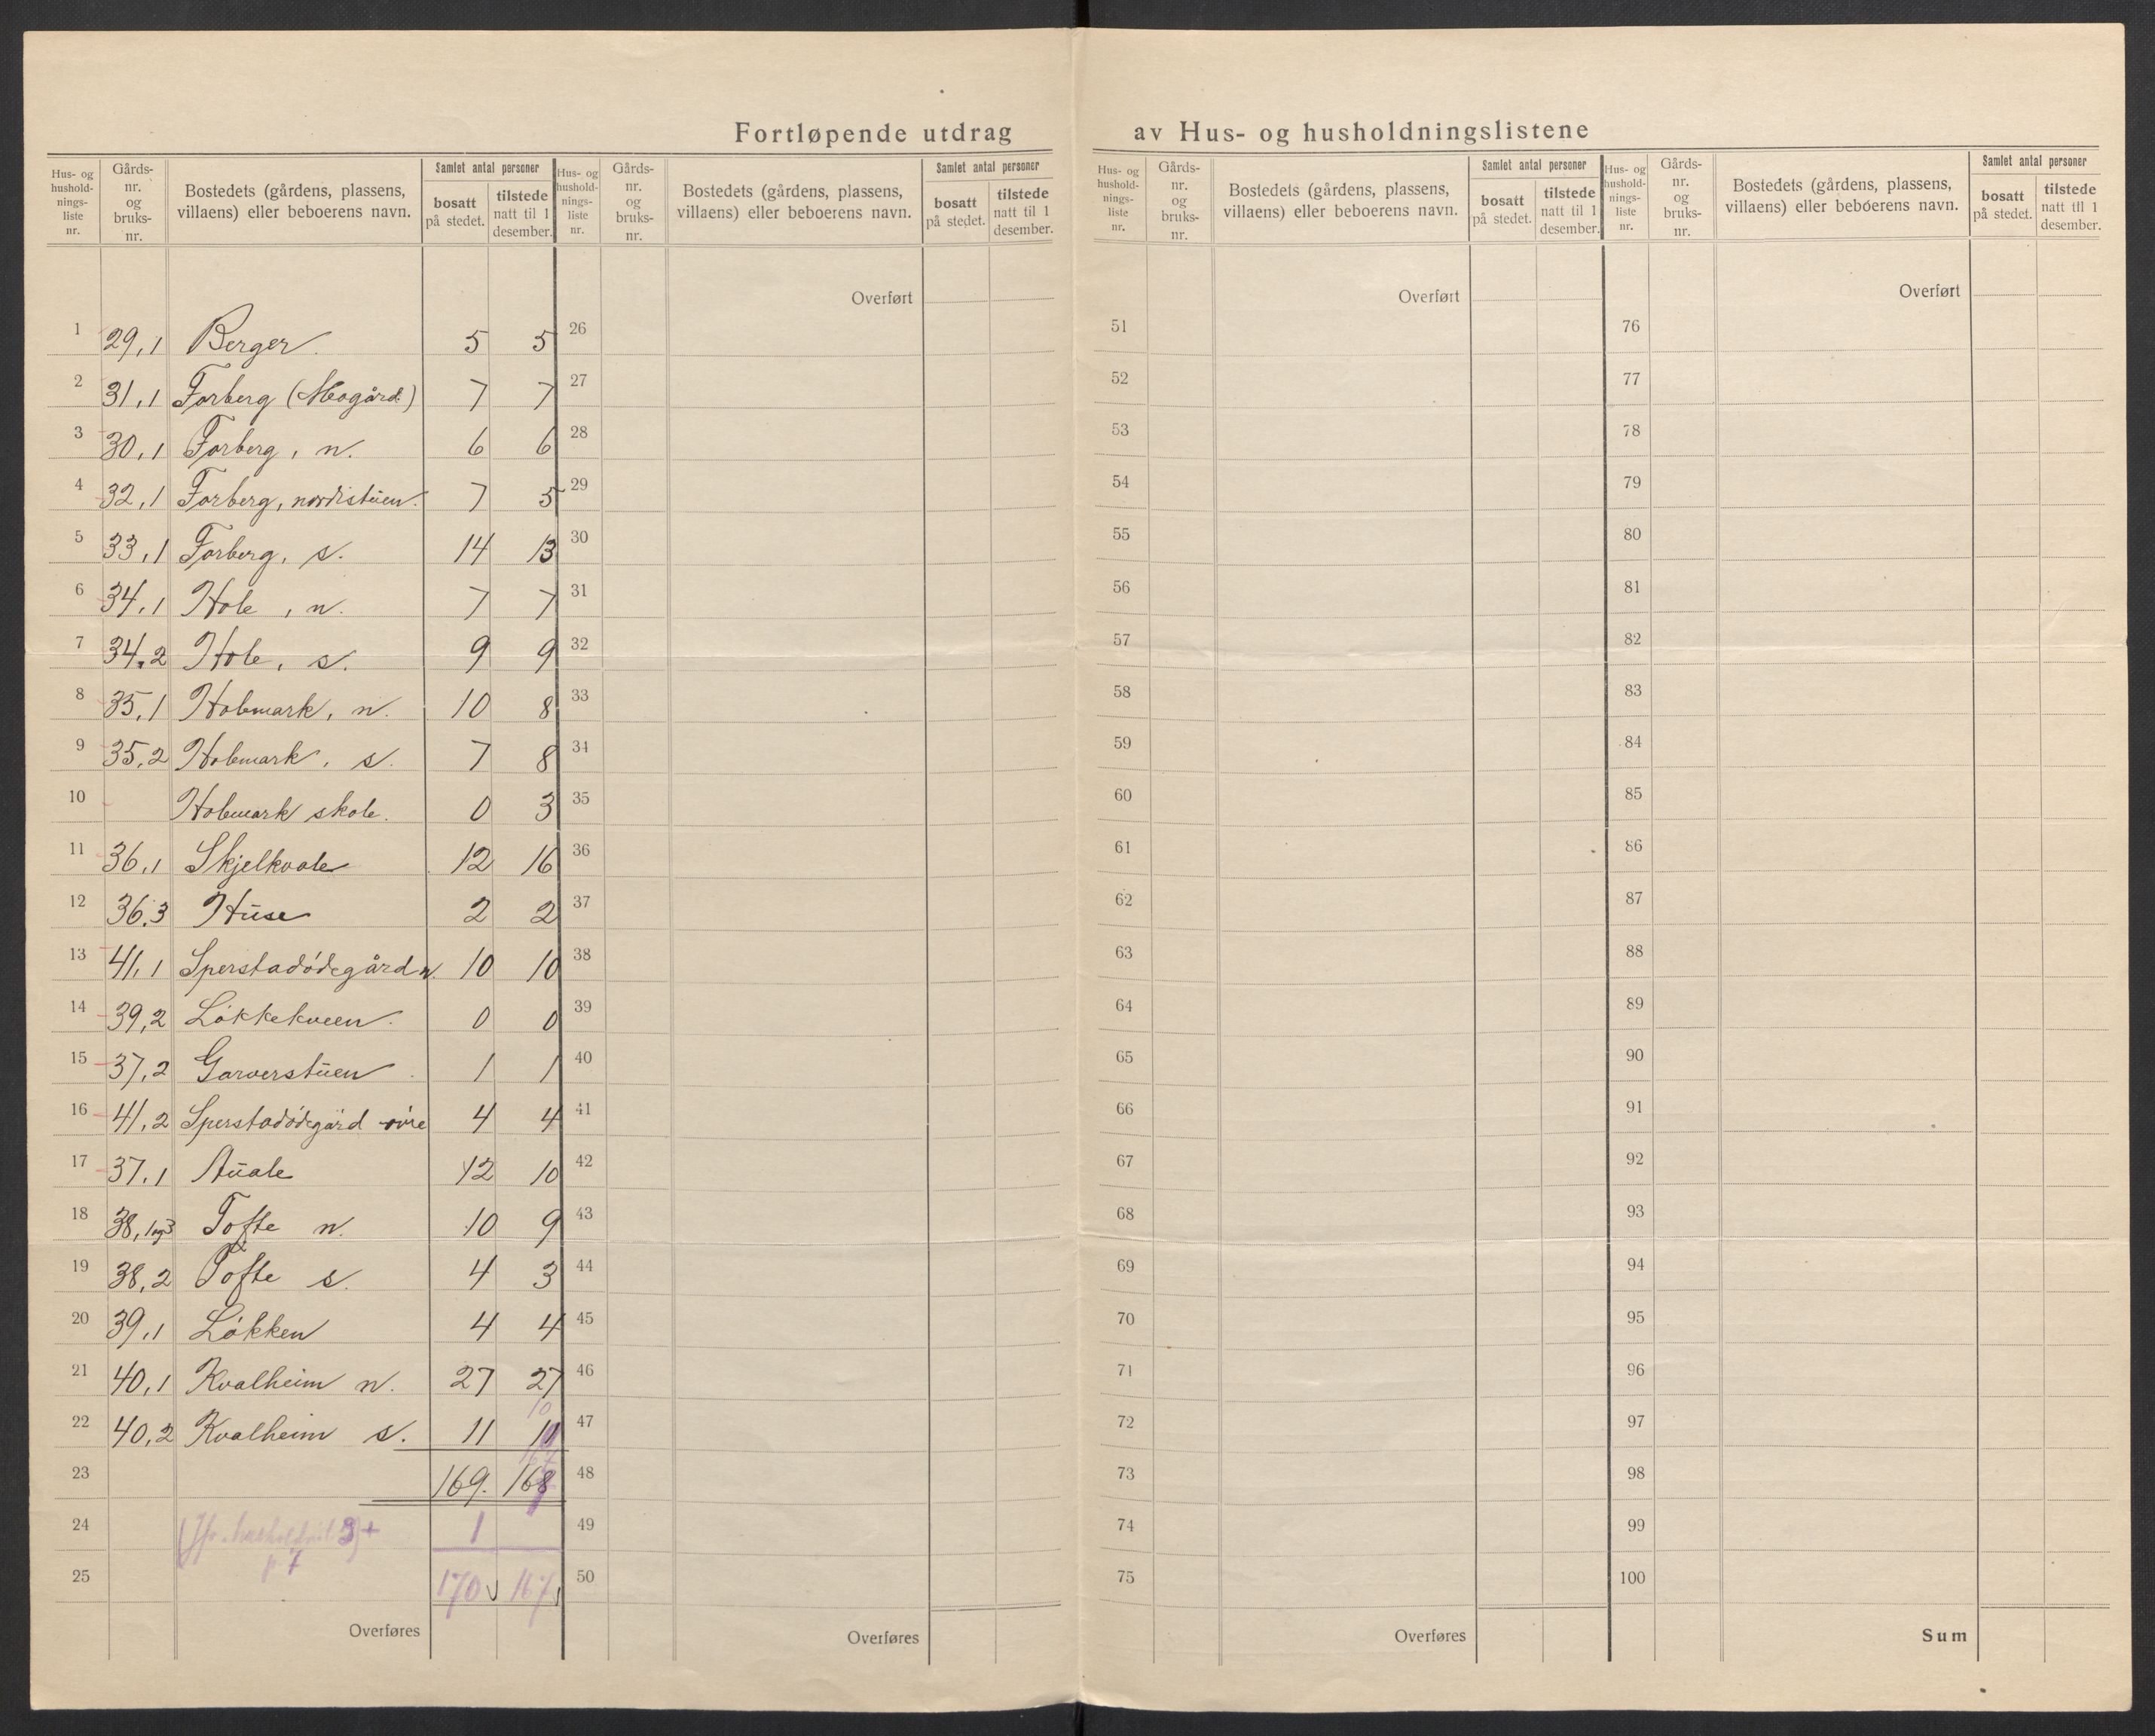 Fortløpende utdrag av Hus- og husholdningslistene
Hus- og hushold- nings- liste nr. | Gårds- nr. og bruks- nr. | Bostedets (gårdens, plassens, villaens) eller beboerens navn. | Samlet antal personer | bosatt på stedet. | tilstede natt til 1 desember.
Hus- og hushold- nings- liste nr. | Gårds- nr. og bruks- nr. | Bostedets (gårdens, plassens, villaens) eller beboerens navn. | Samlet antal personer | bosatt på stedet. | tilstede natt til 1 desember.
Hus- og hushold- nings- liste nr. | Gårds- nr. og bruks- nr. | Bostedets (gårdens, plassens, villaens) eller beboerens navn. | Samlet antal personer | bosatt på stedet. | tilstede natt til 1 desember.
Hus- og hushold- nings- liste nr. | Gårds- nr. og bruks- nr. | Bostedets (gårdens, plassens, villaens) eller beboerens navn. | Samlet antal personer | bosatt på stedet. | tilstede natt til 1 desember.
Overført Overført Overført
1 29,1 Berger. 5 5 26 51 76
2 31,1 Forberg (Mogård) 7 7 27 52 77
3 30,1 Forberg, n. 6 6 28 53 78
4 32,1 Forberg, nordistuen. 7 5 29 54 79
5 33,1 Forberg, s. 14 13 30 55 80
6 34,1 Hole, n. 7 7 31 56 81
7 34,2 Hole, s. 9 9 32 57 82
8 35,1 Holemark, n. 10 8 33 58 83
9 35,2 Holemark, s. 7 8 34 59 84
10 Holemark skole. 0 3 35 60 85
11 36,1 Skjelkvale 12 16 36 61 86
12 36,3 Huse 2 2 37 62 87
13 41,1 Sperstadødegård n. 10 10 38 63 88
14 39,2 Løkkekveen. 0 0 39 64 89
15 37,2 Garverstuen. 1 1 40 65 90
16 41,2 Sperstadødegård øvre 4 4 41 66 91
17 37,1 Auale 12 10 42 67 92
18 38,1og3 Tofte n. 10 9 43 68 93
19 38,2 Tofte s. 4 3 44 69 94
20 39,1 Løkken 4 4 45 70 95
21 40,1 Kvalheim n. 27 27 46 71 96
10
22 40,2 Kvalheim s. 11 11 47 72 97
167
23 169. 168 48 73 98
24 (Jfr. husholdn.l 9) + 1 49 74 99
p 7
25 170 167 50 75 100
Overføres Overføres Overføres Sum